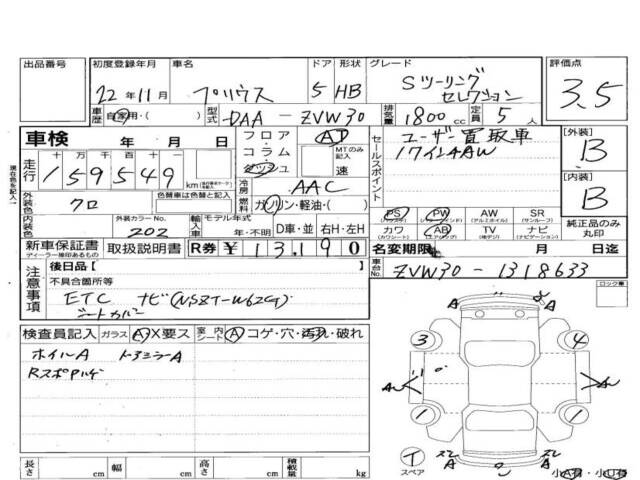 出品番号
初度登録年月
22年11月
車歴 自家用・( )
車名
プリウス
型式 DAA-ZVW30
ドア 5
形状 HB
グレード
Sツーリング
セレクション
排気量 1800cc
定員 5人
評価点
3.5
車検 年 月 日
走行 十万千百十一
159549 km
外装色 クロ
色替車は元色と記入
内装色
外装カラーNo. 202
フロア・AT
コラム・
ダッシュ
MTのみ記入
速
冷房 AAC
燃料 ガソリン・軽油・( )
輸入車 モデル年式 年・不明
D車・並 右H・左H
セールスポイント
ユーザー買取車
17インチAW
PS
PW
AW
SR
(パワステ)
(アルミホイル)
(サンルーフ)
カワ
AB
TV
ナビ
(エアーバッグ)
(ナビゲーション)
[外装]
B
[内装]
B
純正品のみ
丸印
現在色を記入
新車保証書
ディーラー捺印あるもの
取扱説明書
R券 ¥13190
名変期限 月 日迄
車台No. ZVW30-1318633
注意事項
後日品〔 〕
不具合箇所等
ETC ナビ(NSZT-W62G)
シートカバー
ロック車
検査員記入
ガラス A・X要ス
室内シート A コゲ・穴・汚れ・破れ
ホイルA トアミラーA
RスポPハゲ
A
3
4
A
1
1
A
A
スペア
小・小
長さ cm
幅 cm
高さ cm
積載量 kg